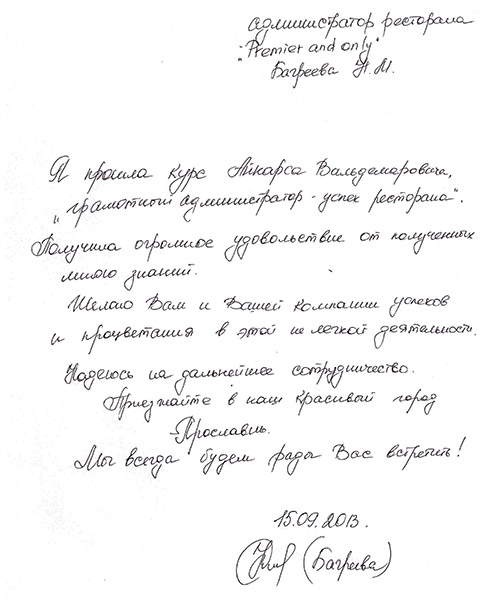 администратор ресторана
"Premier and only"
Багреева Н.М.
Я прошла курс Айкарса Вальдемаровича,
„грамотный администратор - успех ресторана".
Получила огромное удовольствие от полученных
мною знаний.
Желаю Вам и Вашей компании успехов
и процветания в этой не легкой деятельности.
Надеюсь на дальнейшее сотрудничество.
Приезжайте в наш красивый город
Ярославль.
Мы всегда будем рады Вас встретить!
15.09.2013.
(Багреева)